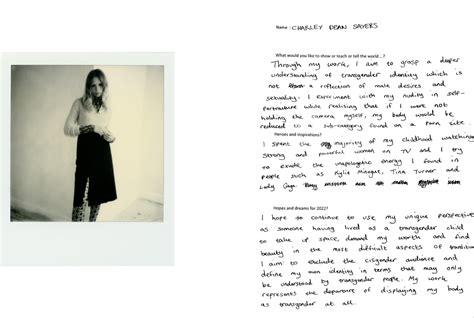 Name : CHARLEY DEAN SAYERS
What would you like to show or teach or tell the world...?
Through my work, I aim to grasp a deeper
understanding of transgender identity which is
not a reflection of male desires and
sexuality. I experiment with my nudity in self-
portraiture while realising that if I were not
holding the camera myself, my body would be
reduced to a sub-category found on a porn site.
Heroes and inspirations?
I spent the majority of my childhood watching
strong and powerful women on TV and I try
to exude the unapologetic energy I found in
people such as Kylie Minogue, Tina Turner and
Lady Gaga.
Hopes and dreams for 2022?
I hope to continue to use my unique perspective
as someone having lived as a transgender child
to take up space, demand my worth and find
beauty in the most difficult aspects of transition
I aim to exclude the cisgender audience and
define my own identity in terms that may only
be understood by transgender people. My work
represents the departure of displaying my body
as transgender at all.